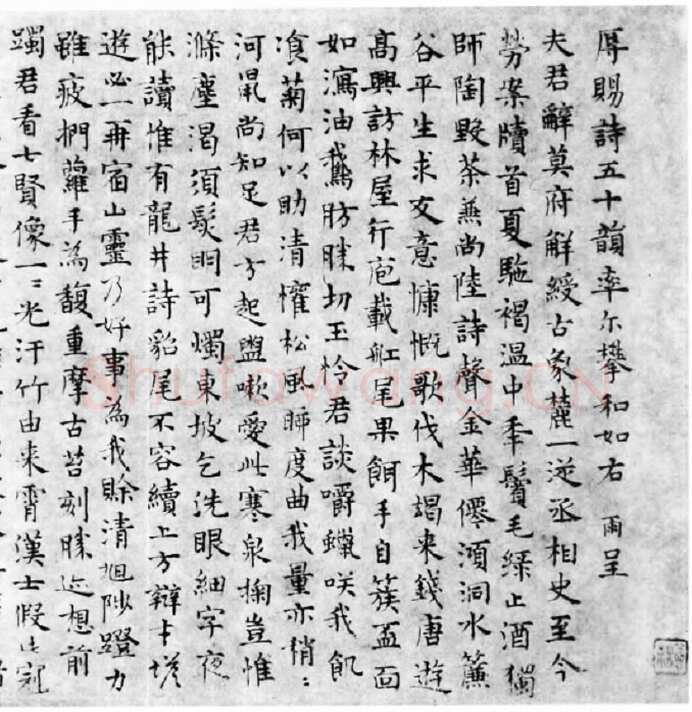 辱賜詩五十韻率尓攀和如右 兩呈
夫君辭莫府解綬古象麓一逆丞相史至今
勞案牘首夏駞褐温中秊鬢毛綠止酒獨
師陶毀茶兼尚陸詩聲金華僊澒洞水簾
谷平生求友意慷慨歌伐木朅来錢唐遊
高興訪林屋行庖載舡尾果餌手自簇面
如瀉油我肪切玉怜君談嚼蠟咲我飢
飡菊何以助清懽松風聊度曲我量亦稍〻
河鼠尚知足君方起盥嗽愛此寒泉掬豈惟
滌塵渴須髮明可燭東坡乞洗眼細字夜
能讀惟有龍井詩貂尾不容續上方辯才塔
遊必一再宿山靈乃好事為我賒清旭陟蹬力
雖疲捫蘿手為馥重摩古苔刻想前
躅君看七賢像一〻光汗竹由来霄漢士假此冠
Shufawang.CN